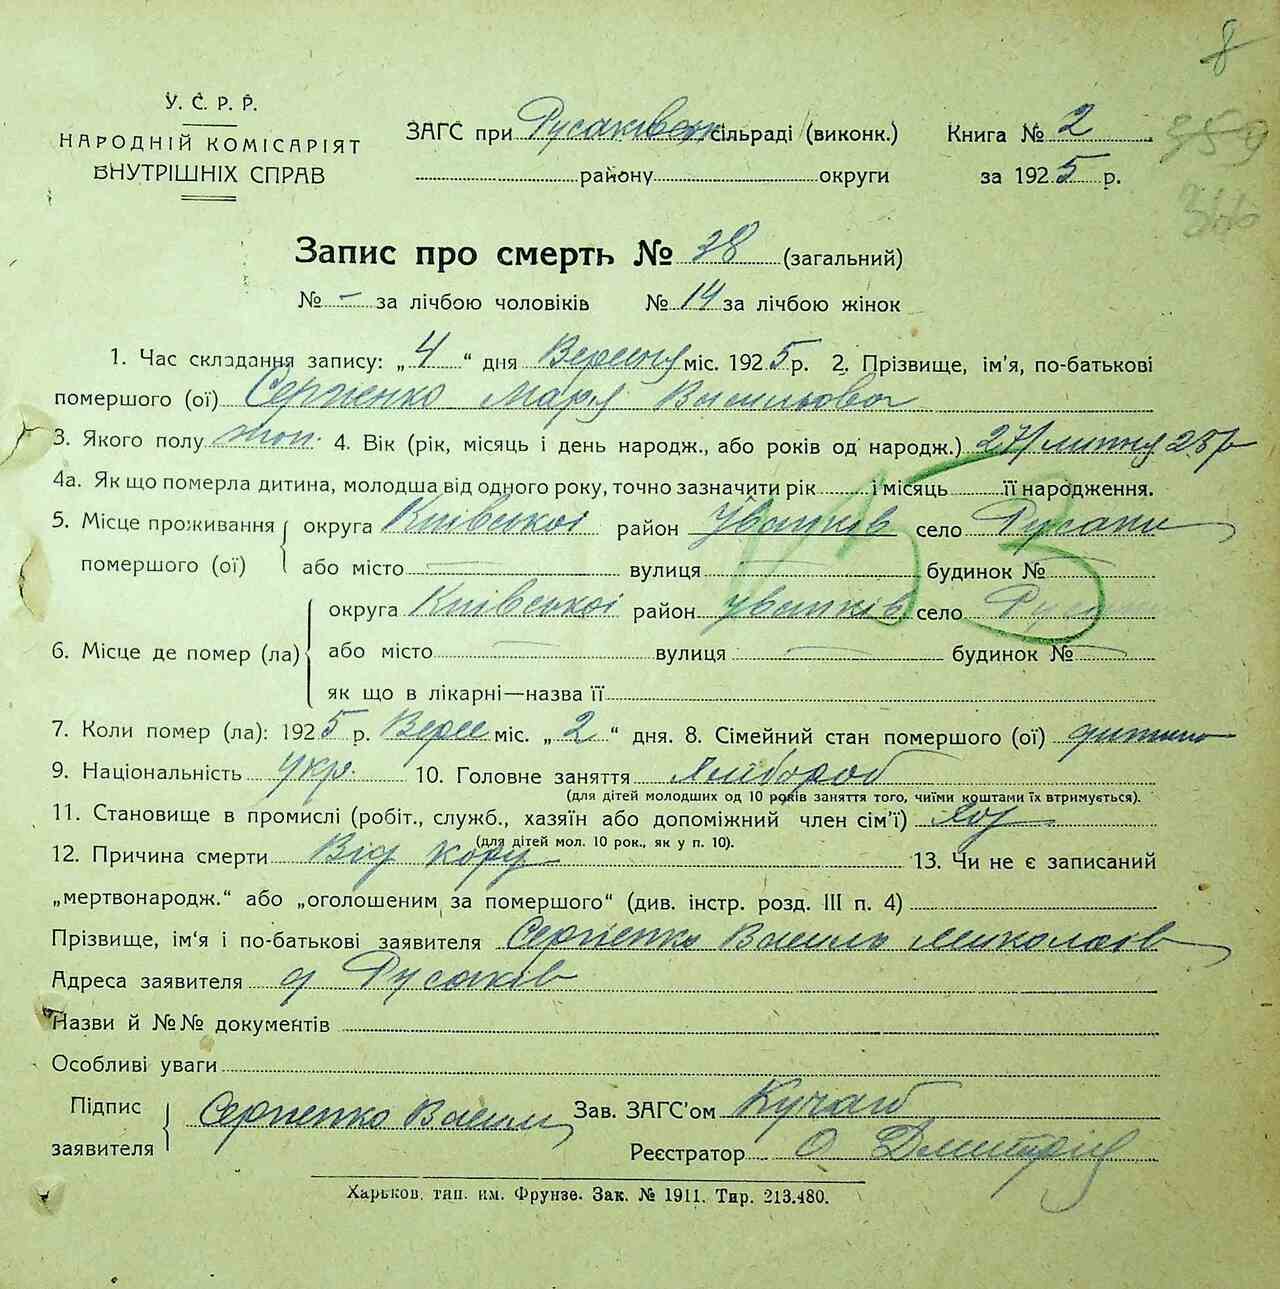 8
У. С. Р. Р.
НАРОДНІЙ КОМІСАРІЯТ
ВНУТРІШНІХ СПРАВ
ЗАГС при Русаківськ сільраді (виконк.)
району округи
Книга № 2
за 1925 р.
359
Запис про смерть № 28 (загальний)
№ – за лічбою чоловіків № 14 за лічбою жінок
1. Час складання запису: „4“ дня Вересня міс. 1925 р. 2. Прізвище, ім'я, по-батькові
помершого (ої) Сергіенко Марія Васильовна
3. Якого полу жін. 4. Вік (рік, місяць і день народж., або років од народж.) 27/липня 25р
4а. Як що померла дитина, молодша від одного року, точно зазначити рік і місяць її народження.
153
5. Місце проживання помершого (ої) округа Київськоі район село Русанів
або місто — вулиця — будинок № —
6. Місце де помер (ла) округа Київськоі район село
або місто — вулиця — будинок № —
як що в лікарні—назва її
7. Коли помер (ла): 1925 р. Верес міс. „2“ дня. 8. Сімейний стан помершого (ої) дитина
9. Національність укр. 10. Головне заняття Хлібороб
(для дітей молодших од 10 років заняття того, чиїми коштами їх втримується).
11. Становище в промислі (робіт., служб., хазяїн або допоміжний член сім'ї) Хоз
(для дітей мол. 10 рок., як у п. 10).
12. Причина смерти Від кору 13. Чи не є записаний
„мертвонародж.“ або „оголошеним за помершого“ (див. інстр. розд. III п. 4)
Прізвище, ім'я і по-батькові заявителя Сергіенко Василь Миколаів
Адреса заявителя д Русанів
Назви й №№ документів
Особливі уваги
Підпис заявителя Сергіенко Васил
Зав. ЗАГС'ом
Реєстратор О Дмитрів
Харьков. тип. им. Фрунзе. Зак. № 1911. Тир. 213.480.